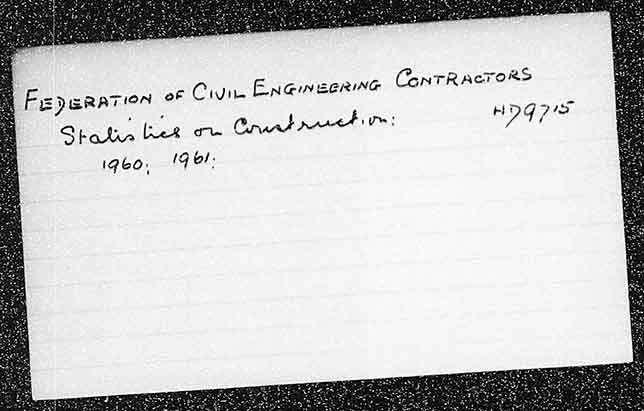 FEDERATION OF CIVIL ENGINEERING CONTRACTORS
Statistics on Construction: HD9715
1960; 1961: